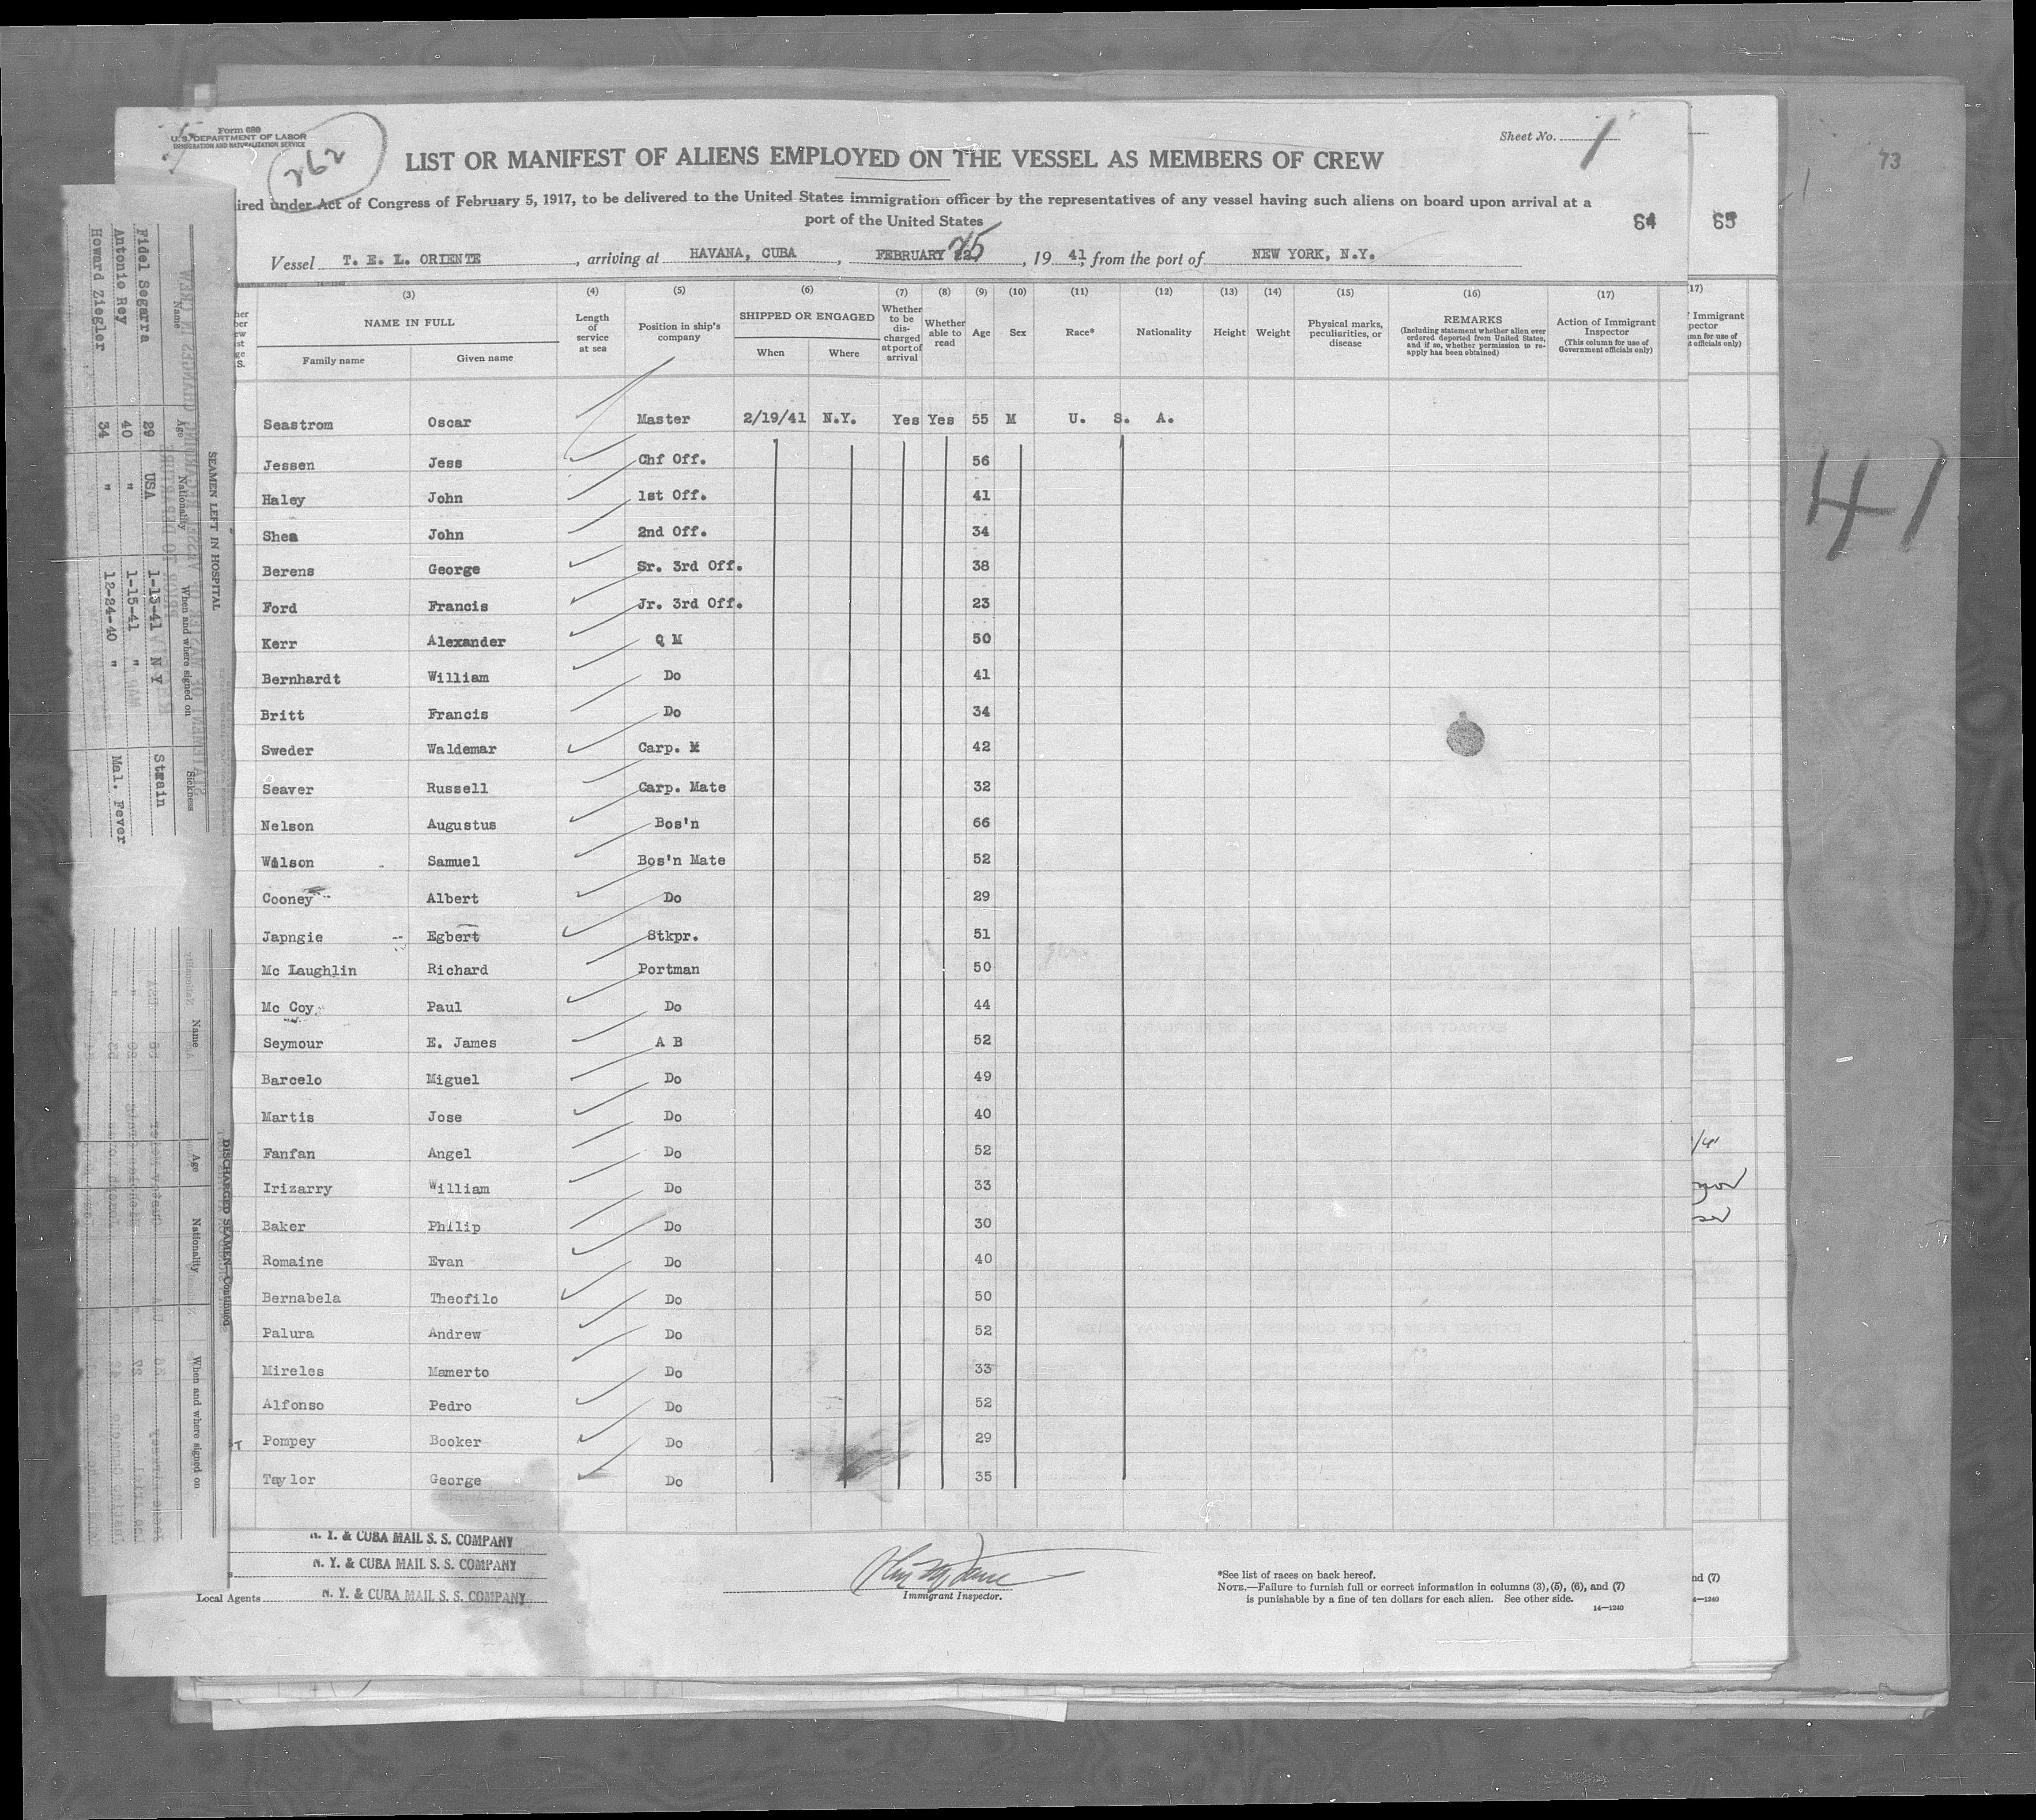 Form 680
U. S. DEPARTMENT OF LABOR
IMMIGRATION AND NATURALIZATION SERVICE
262
Sheet No. 1
LIST OR MANIFEST OF ALIENS EMPLOYED ON THE VESSEL AS MEMBERS OF CREW
ired under Act of Congress of February 5, 1917, to be delivered to the United States immigration officer by the representatives of any vessel having such aliens on board upon arrival at a
port of the United States
64 65
73
41
Vessel T. E. L. ORIENTE, arriving at HAVANA, CUBA, FEBRUARY 25, 19 41, from the port of NEW YORK, N.Y.
(3) (4) (5) (6) (7) (8) (9) (10) (11) (12) (13) (14) (15) (16) (17) 17)
NAME IN FULL
Family name Given name
Length of service at sea
Position in ship's company
SHIPPED OR ENGAGED
When Where
Whether to be discharged at port of arrival
Whether able to read
Age
Sex
Race*
Nationality
Height
Weight
Physical marks, peculiarities, or disease
REMARKS
(Including statement whether alien ever ordered deported from United States, and if so, whether permission to reapply has been obtained)
Action of Immigrant Inspector
(This column for use of Government officials only)
Seastrom Oscar Master 2/19/41 N.Y. Yes Yes 55 M U. S. A.
Jessen Jess Chf Off. 56
Haley John 1st Off. 41
Shea John 2nd Off. 34
Berens George Sr. 3rd Off. 38
Ford Francis Jr. 3rd Off. 23
Kerr Alexander Q M 50
Bernhardt William Do 41
Britt Francis Do 34
Sweder Waldemar Carp. M 42
Seaver Russell Carp. Mate 32
Nelson Augustus Bos'n 66
Wilson Samuel Bos'n Mate 52
Cooney Albert Do 29
Japngie Egbert Stkpr. 51
Mc Laughlin Richard Portman 50
Mc Coy Paul Do 44
Seymour E. James A B 52
Barcelo Miguel Do 49
Martis Jose Do 40
Fanfan Angel Do 52
Irizarry William Do 33
Baker Philip Do 30
Romaine Evan Do 40
Bernabela Theofilo Do 50
Palura Andrew Do 52
Mireles Mamerto Do 33
Alfonso Pedro Do 52
Pompey Booker Do 29
Taylor George Do 35
N. Y. & CUBA MAIL S. S. COMPANY
N. Y. & CUBA MAIL S. S. COMPANY
Local Agents N. Y. & CUBA MAIL S. S. COMPANY
Immigrant Inspector.
*See list of races on back hereof.
NOTE.—Failure to furnish full or correct information in columns (3), (5), (6), and (7)
is punishable by a fine of ten dollars for each alien. See other side.
14—1240
nd (7)
4—1240
SEAMEN LEFT IN HOSPITAL
Name Age Nationality When and where signed on Sickness
Fidel Segarra 29 USA 1-13-41 N Y Strain
Antonio Rey 40 " 1-15-41 " Mal. Fever
Howard Ziegler 34 " 12-24-40 "
DISCHARGED SEAMEN—Continued
Name Age Nationality When and where signed on